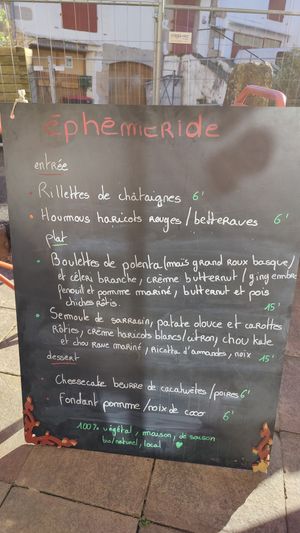 éphémicride
entrée
Rillettes de châtaignes 6'
Houmous haricots rouges / betteraves 6'
plat
Boulettes de polenta (maïs grand roux basque)
et céleri branche, crème butternut / gingembre
fenouil et pomme mariné, butternut et pois
chiches rôtis. 15'
Semoule de sarrasin, patate douce et carottes
Rôties, crème haricots blancs/citron, chou kale
et chou rave mariné, ricotta d'amandes, noix
15'
dessert
Cheesecake beurre de cacahuètes / poires 6'
Fondant pomme / noix de coco
6'
100% végétal, maison, de saison
bio/naturel, local